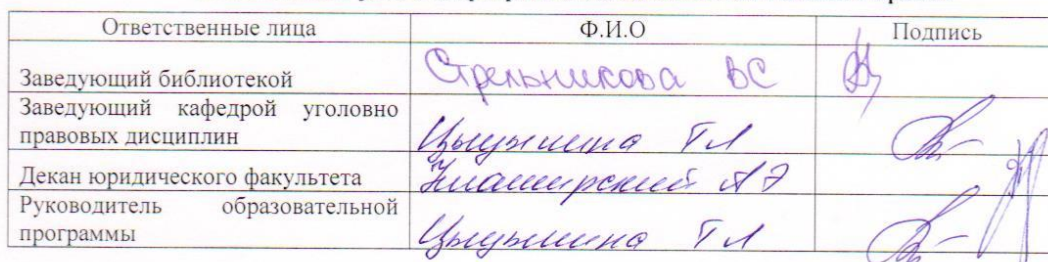 Ответственные лица Ф.И.О Подпись
Заведующий библиотекой Стрельникова ВС
Заведующий кафедрой уголовно
правовых дисциплин ТЛ
Декан юридического факультета АЭ
Руководитель образовательной
программы ТЛ